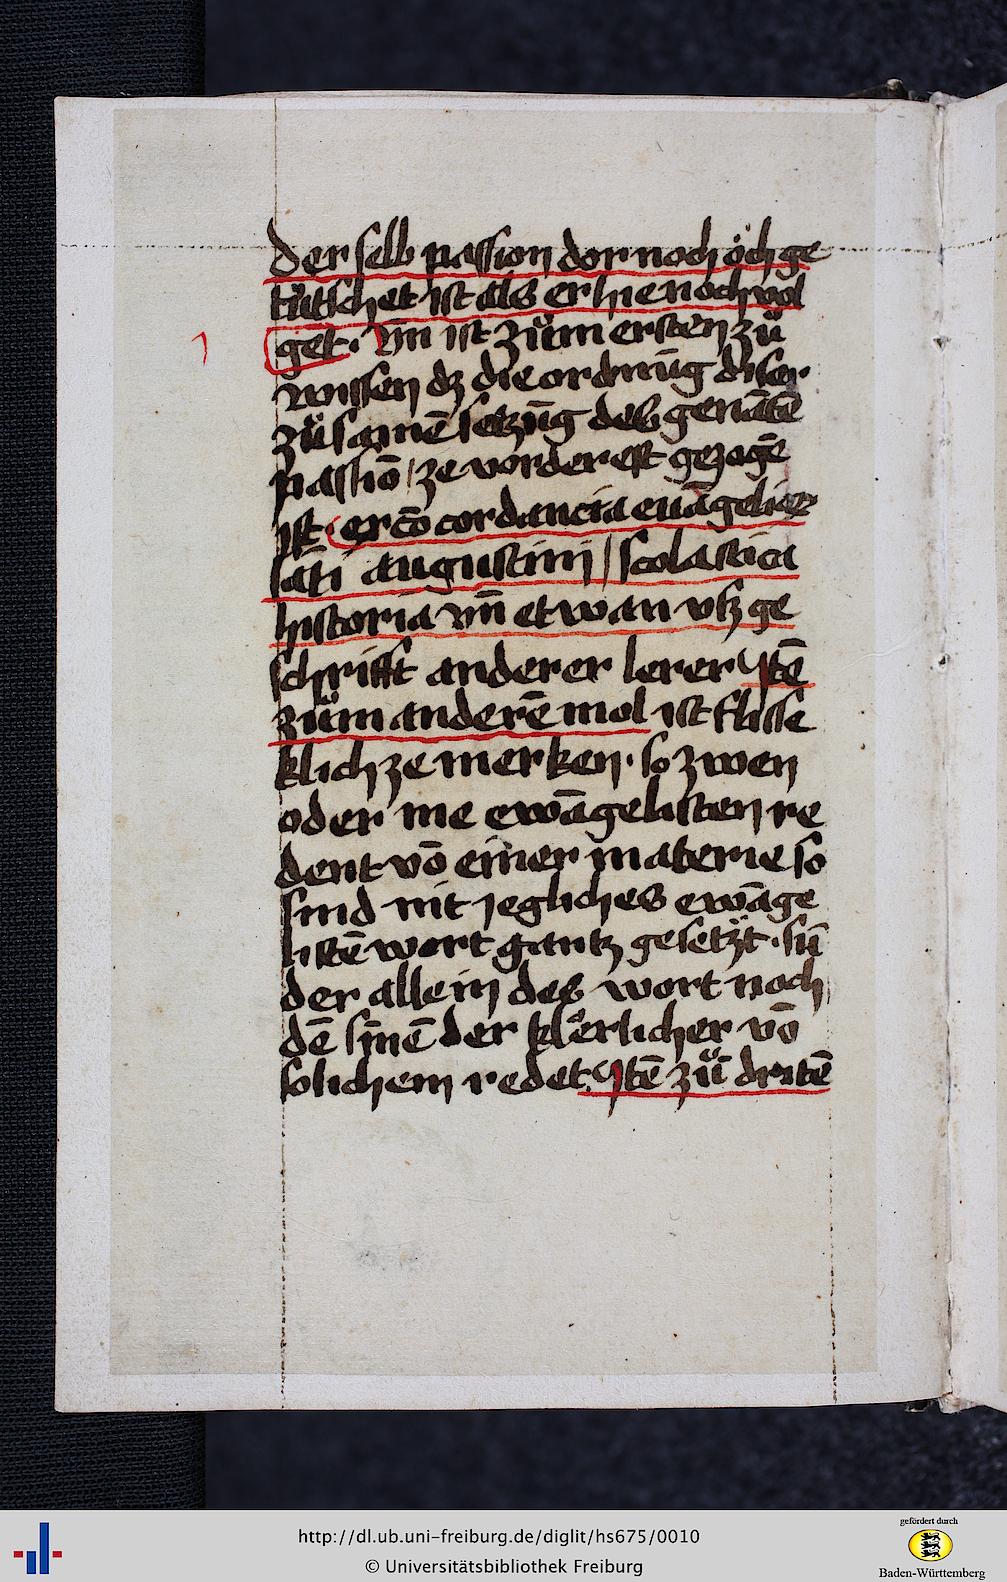 der selb passion dor noch öch ge
tütschet ist als er hie noch vol
get. Vnn ist zům ersten zů
1
wissen dz die ordnūg diser
zůsamē setzūg des genātē
passiō / ze vorderest gezogē
ist er cōcordancia euāgelior
sāti augustini / scolastica
historia vnn etwan vsz ge
schrifft anderer lerer Itē
zům anderē mol ist flisse
klich ze merken. so zwen
oder me ewāgelisten re
dent vō einer materie so
sind nit iegliches ewāge
listē wort gantz gesetzt. sū
der allein des wort noch
dē sinnē der klerlicher vō
solichem redet. Itē zů dritē
http://dl.ub.uni-freiburg.de/diglit/hs675/0010
© Universitätsbibliothek Freiburg
gefördert durch
Baden-Württemberg